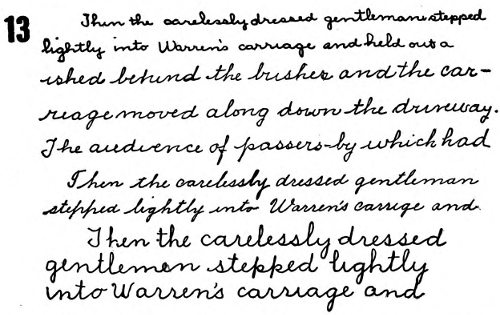 13
Then the carelessly dressed gentleman stepped
lightly into Warren's carriage and held out a
ished behind the bushes and the car-
riage moved along down the driveway.
The audience of passers-by which had
Then the carelessly dressed gentleman
stepped lightly into Warren's carrige and
Then the carelessly dressed
gentlemen stepped lightly
into Warren's carriage and